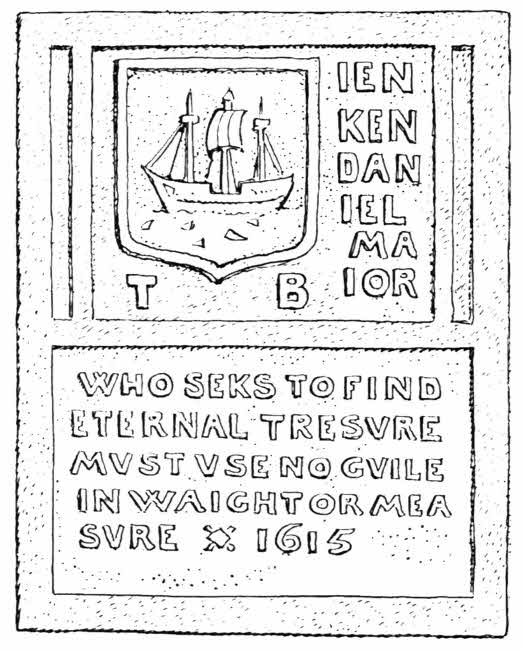 IEN
KEN
DAN
IEL
MA
IOR
T B
WHO SEKS TO FIND
ETERNAL TRESVRE
MVST VSE NO GVILE
IN WAIGHT OR MEA
SVRE 1615